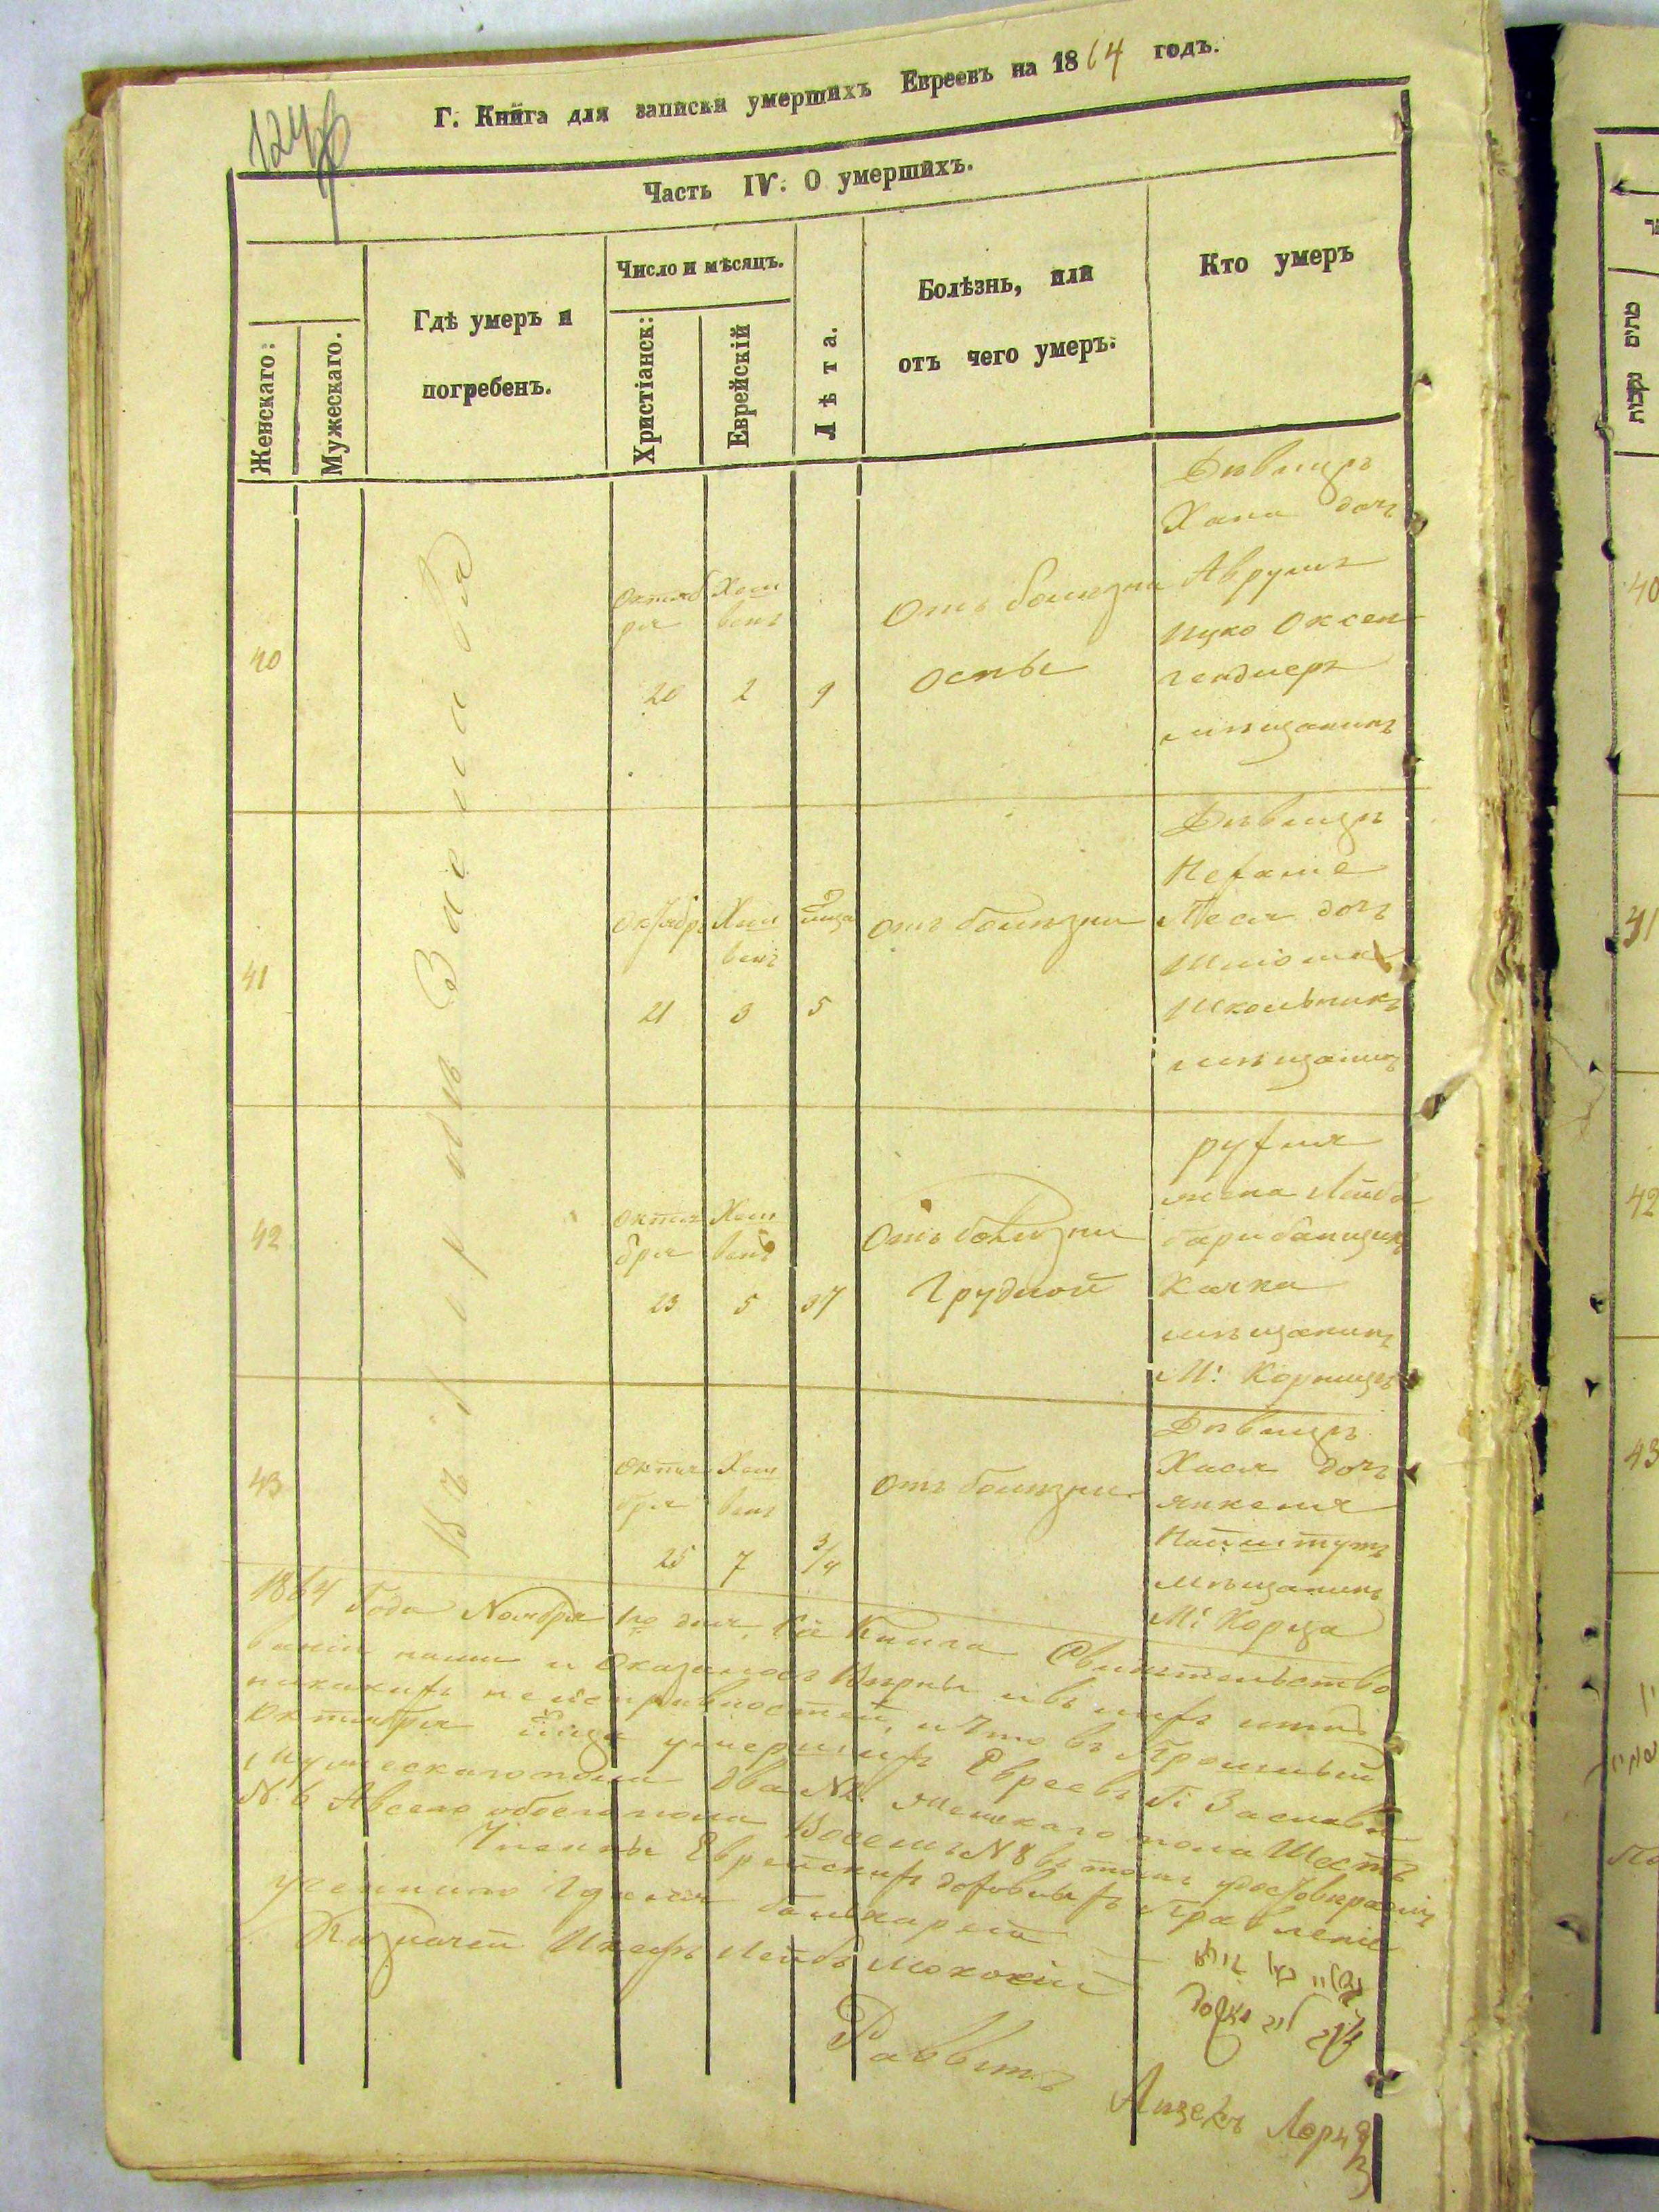 Г. Книга для записки умершихъ Евреевъ на 1864 годъ.
Часть IV. О умершихъ.
Женскаго:
Мужескаго.
Гдѣ умеръ и
погребенъ.
Число и мѣсяцъ.
Христіанск:
Еврейскій
Лѣта.
Болѣзнь, или
отъ чего умеръ:
Кто умеръ
40
Октяб
ря
20
Хеш
венъ
2
9
Отъ болезни
оспы
Дѣвица
Хана дочь
Аврума
Ицко Оксен
гендлера
мѣщанинъ
41
Октябр
21
Хеш
венъ
3
5
отъ болѣзни
Дѣвица
Нехаме
Песя дочь
Шлiома
Школьникъ
мѣщанинъ
42
Октя
бря
23
Хеш
венъ
5
37
Отъ болѣзни
Грудной
рухля
жена Лейба
Качка
мѣщанинъ
М: Корница
43
Октя
бря
25
Хеш
венъ
7
3/4
отъ болѣзни
Дѣвица
Хася дочь
янкеля
мѣщанинъ
М: Корца
Въ городѣ Заславѣ
1864 Года Ноября 1го дня Сiя Книга Свидѣтельство
вана нами и Оказалось Вѣрны и въ нихъ
никакихъ неисправностей, и Что въ Прошлый
Октябрѣ умершихъ Евреевъ Г: Заслава
Мужескаго пола два N 2. женскаго пола Шесть
N. 6 Авсего обоего пола Восемъ N 8 въ томъ удостовѣряемъ
Члены Еврейскихъ духовныхъ Правленiе
Казначей Лейбъ
Раввинъ